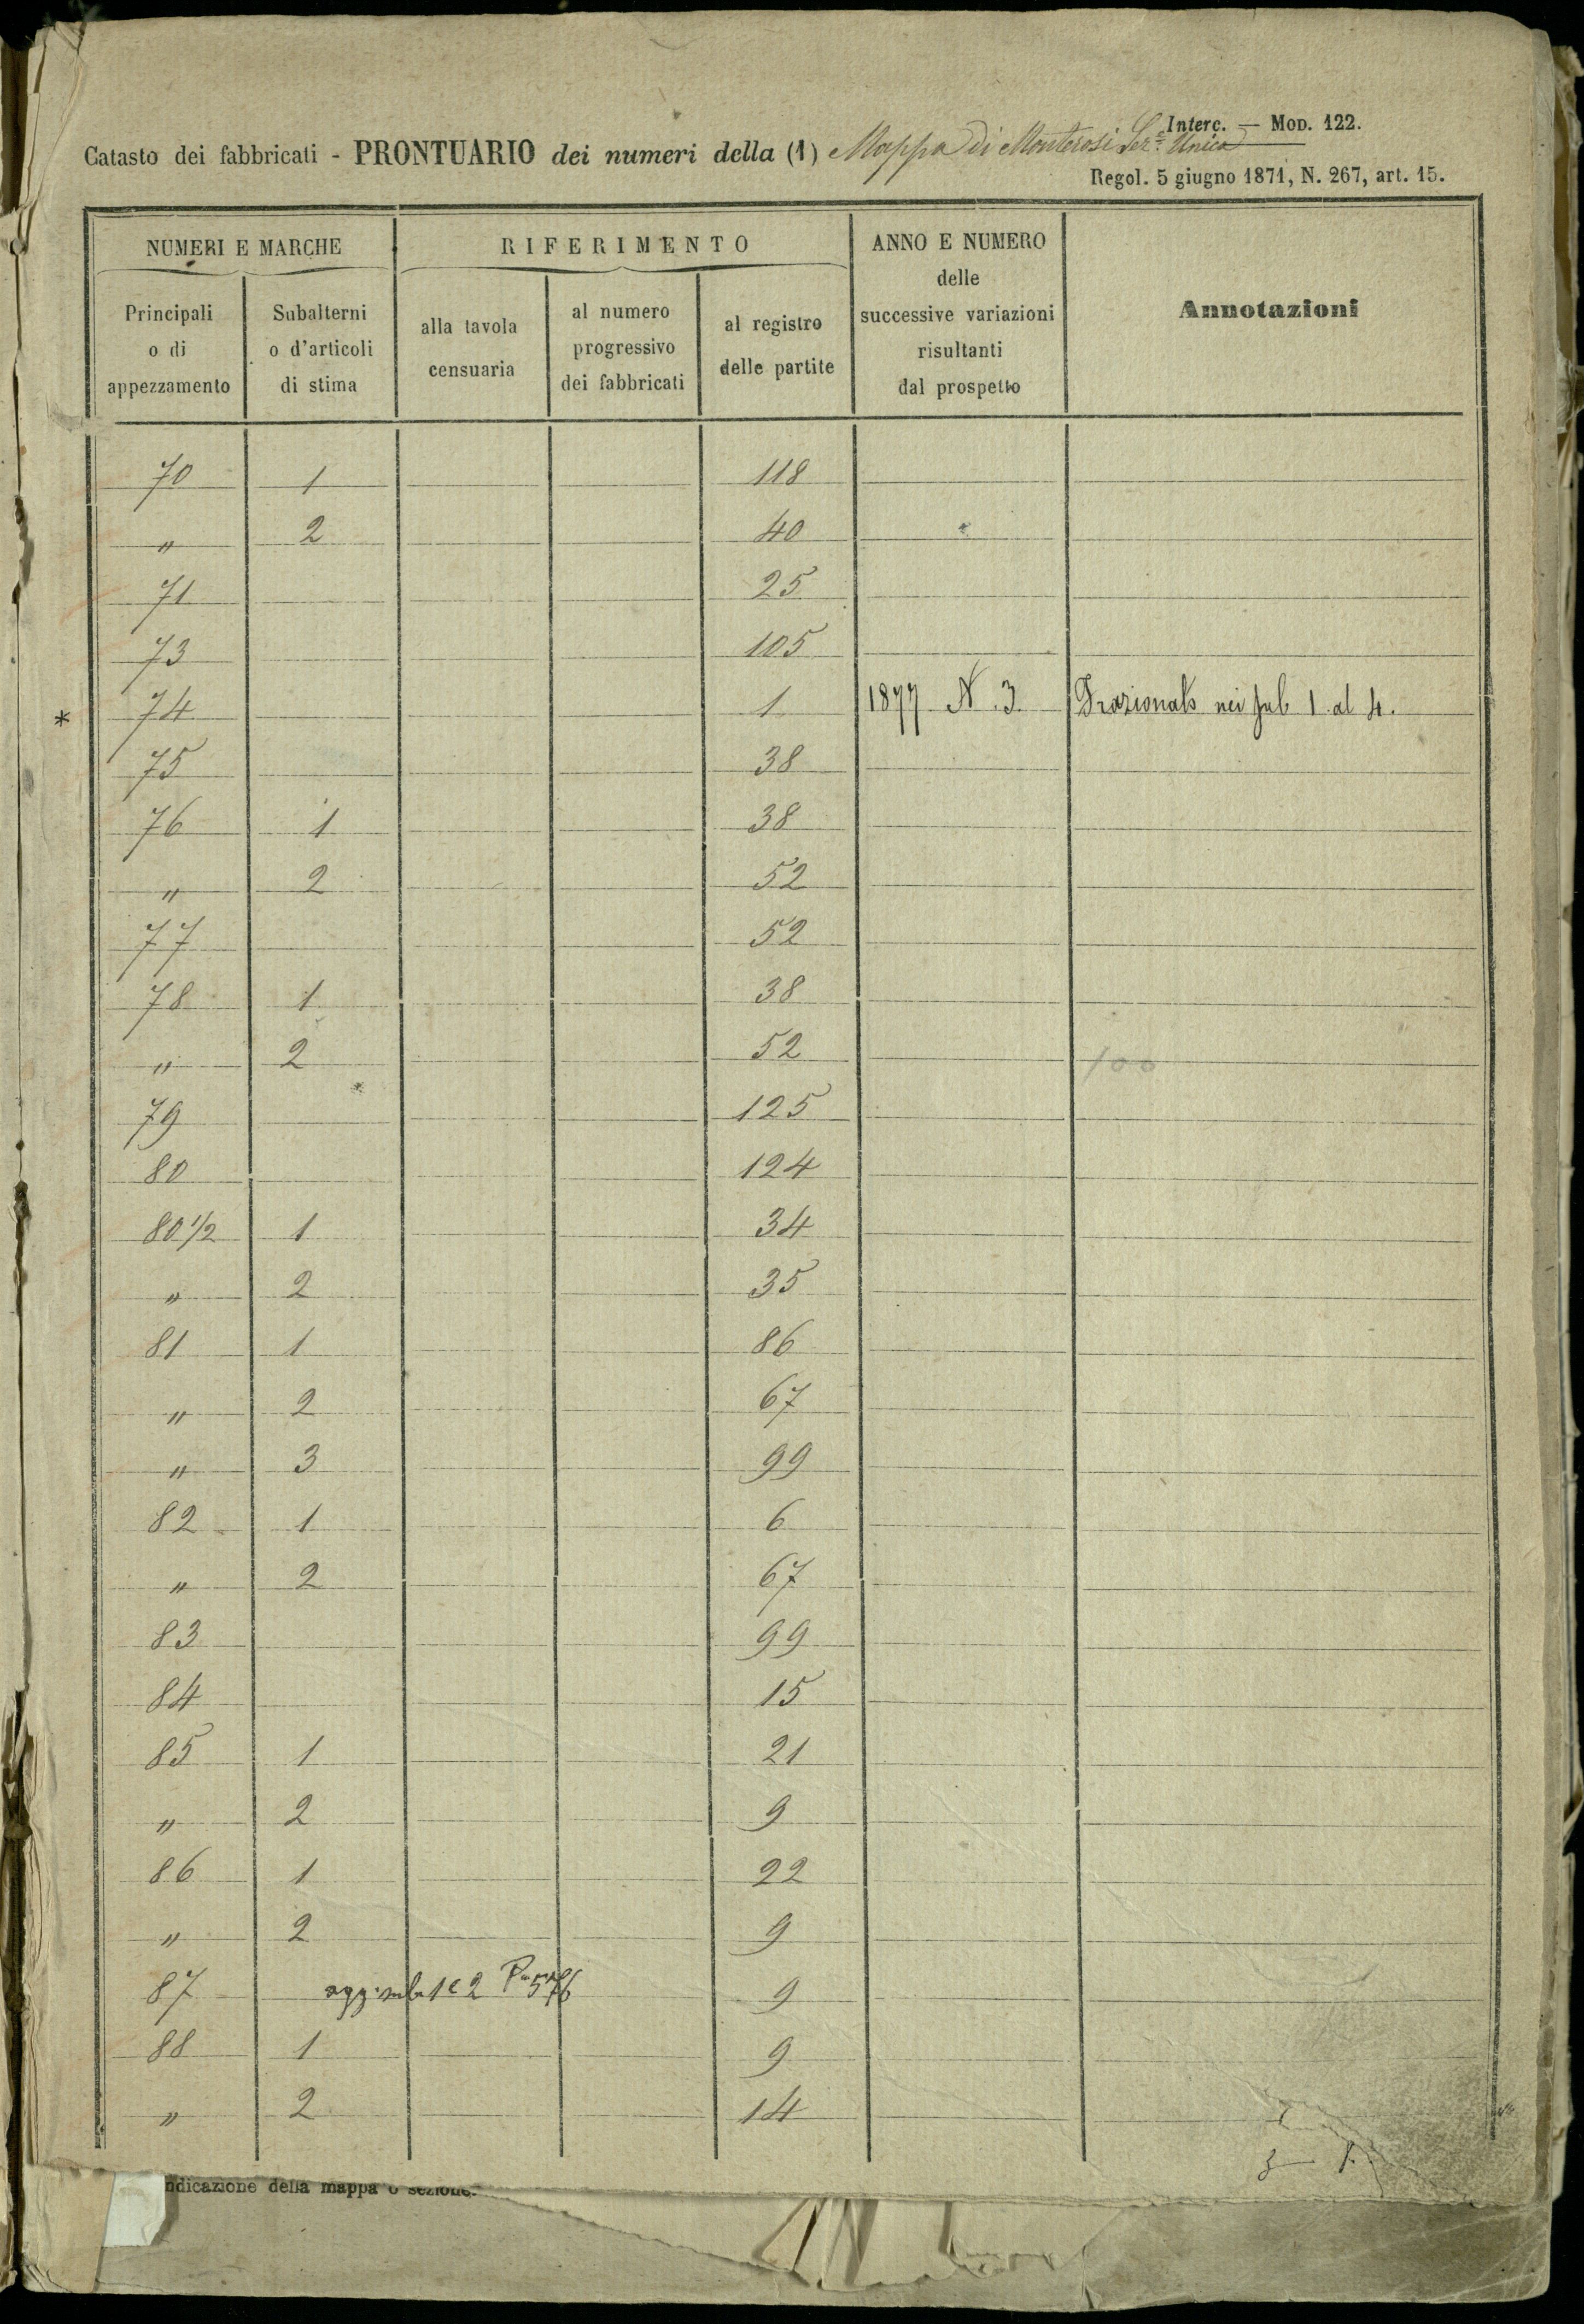 Interc. — Mod. 122.
Catasto dei fabbricati - PRONTUARIO dei numeri della (1) Mappa di Monterosi Sez.e Unica
Regol. 5 giugno 1871, N. 267, art. 15.
NUMERI E MARCHE
RIFERIMENTO
ANNO E NUMERO
delle
successive variazioni
risultanti
dal prospetto
Annotazioni
Principali
o di
appezzamento
Subalterni
o d'articoli
di stima
alla tavola
censuaria
al numero
progressivo
dei fabbricati
al registro
delle partite
70 1 118
" 2 40
71 25
73 105
* 74 1 1877 N. 3 Frazionato nei sub 1 al 4.
75 38
76 1 38
" 2 52
77 52
78 1 38
" 2 52 100
79 125
80 124
80 1/2 1 34
" 2 35
81 1 86
" 2 67
" 3 99
82 1 6
" 2 67
83 99
84 15
85 1 21
" 2 9
86 1 22
" 2 9
87 agg. sub 1 e 2 9
88 1 9
" 2 14
ndicazione della mappa o sezione.